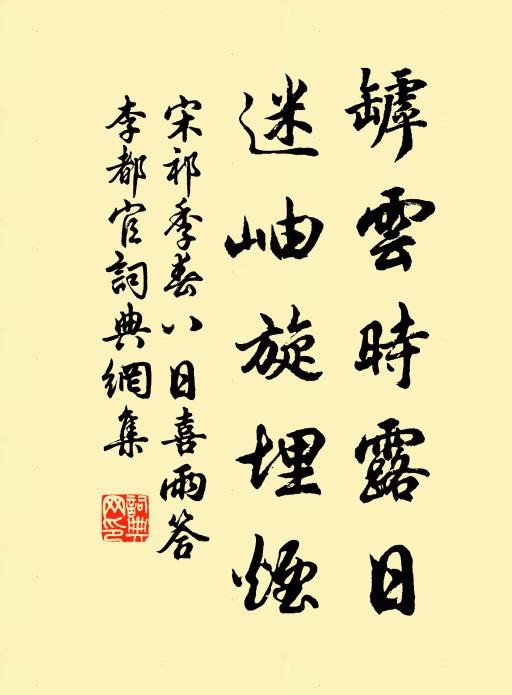 罅雲時露日
迷岫旋埋煙
宋祁季春八日喜雨答
李都官詞典網集
詞典
网印